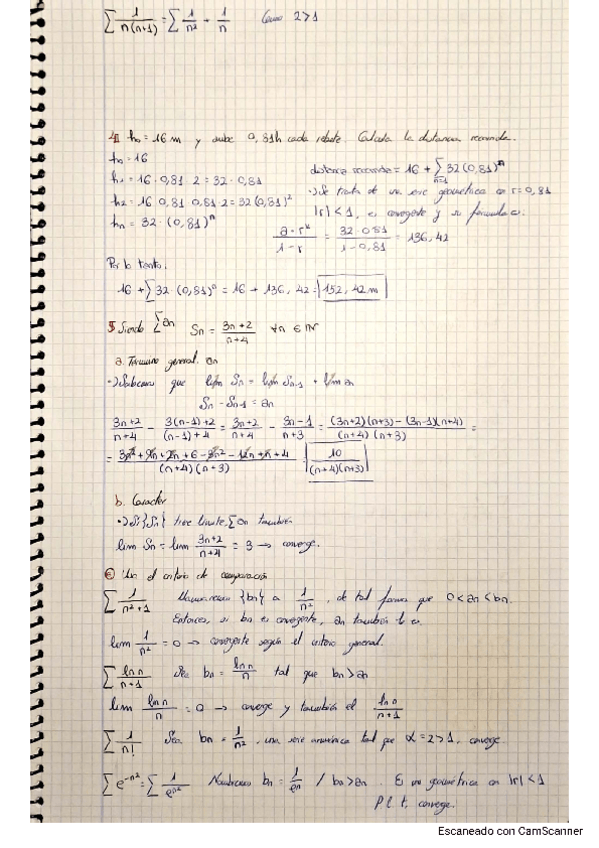 ∑ 1/n(n+1) = ∑ 1/n² + 1/n   Como 2>1
4| h₀ = 16 m y sube 0,81h cada rebote. Calcula la distancia recorrida.
h₀ = 16
h₁ = 16 · 0,81 · 2 = 32 · 0,81
h₂ = 16 · 0,81 · 0,81 · 2 = 32 (0,81)²
hₙ = 32 · (0,81)ⁿ
distancia recorrida = 16 + ∑ₙ₌₁ 32 (0,81)ⁿ
Se trata de una serie geométrica con r = 0,81
|r| < 1, es convergente y su fórmula es:
a · rᵏ/1-r = 32 · 0,81/1-0,81 = 136,42
Por lo tanto:
16 + ∑ 32 · (0,81)ⁿ = 16 + 136,42 = 152,42 m
5 Siendo ∑ an   Sn = 3n+2/n+4   ∀n ∈ ℕ
a. Término general. an
Sabemos que lim Sn = lim Sn-1 + lim an
Sn - Sn-1 = an
3n+2/n+4 - 3(n-1)+2/(n-1)+4 = 3n+2/n+4 - 3n-1/n+3 = (3n+2)(n+3) - (3n-1)(n+4)/(n+4)(n+3) =
= 3n² + 9n + 2n + 6 - 3n² - 12n + n + 4/(n+4)(n+3) = 10/(n+4)(n+3)
b. Carácter
Si {Sn} tiene límite, ∑ an también
lim Sn = lim 3n+2/n+4 = 3 → converge.
6 Usa el criterio de comparación
∑ 1/n²+1   {bn} a 1/n², de tal forma que 0 < an < bn.
Entonces, si bn es convergente, an también lo es.
lim 1/n² = 0 → convergente según el criterio general.
∑ ln n/n+1   Sea bn = ln n/n tal que bn > an
lim ln n/n = 0 → converge y también el ln n/n+1
∑ 1/n!   Sea bn = 1/n², una serie armónica tal que α = 2 > 1, converge
∑ e^-n² = ∑ 1/e^n²   bn = 1/eⁿ / bn > an. Es una geométrica con |r| < 1
P.l.t, converge.
Escaneado con CamScanner